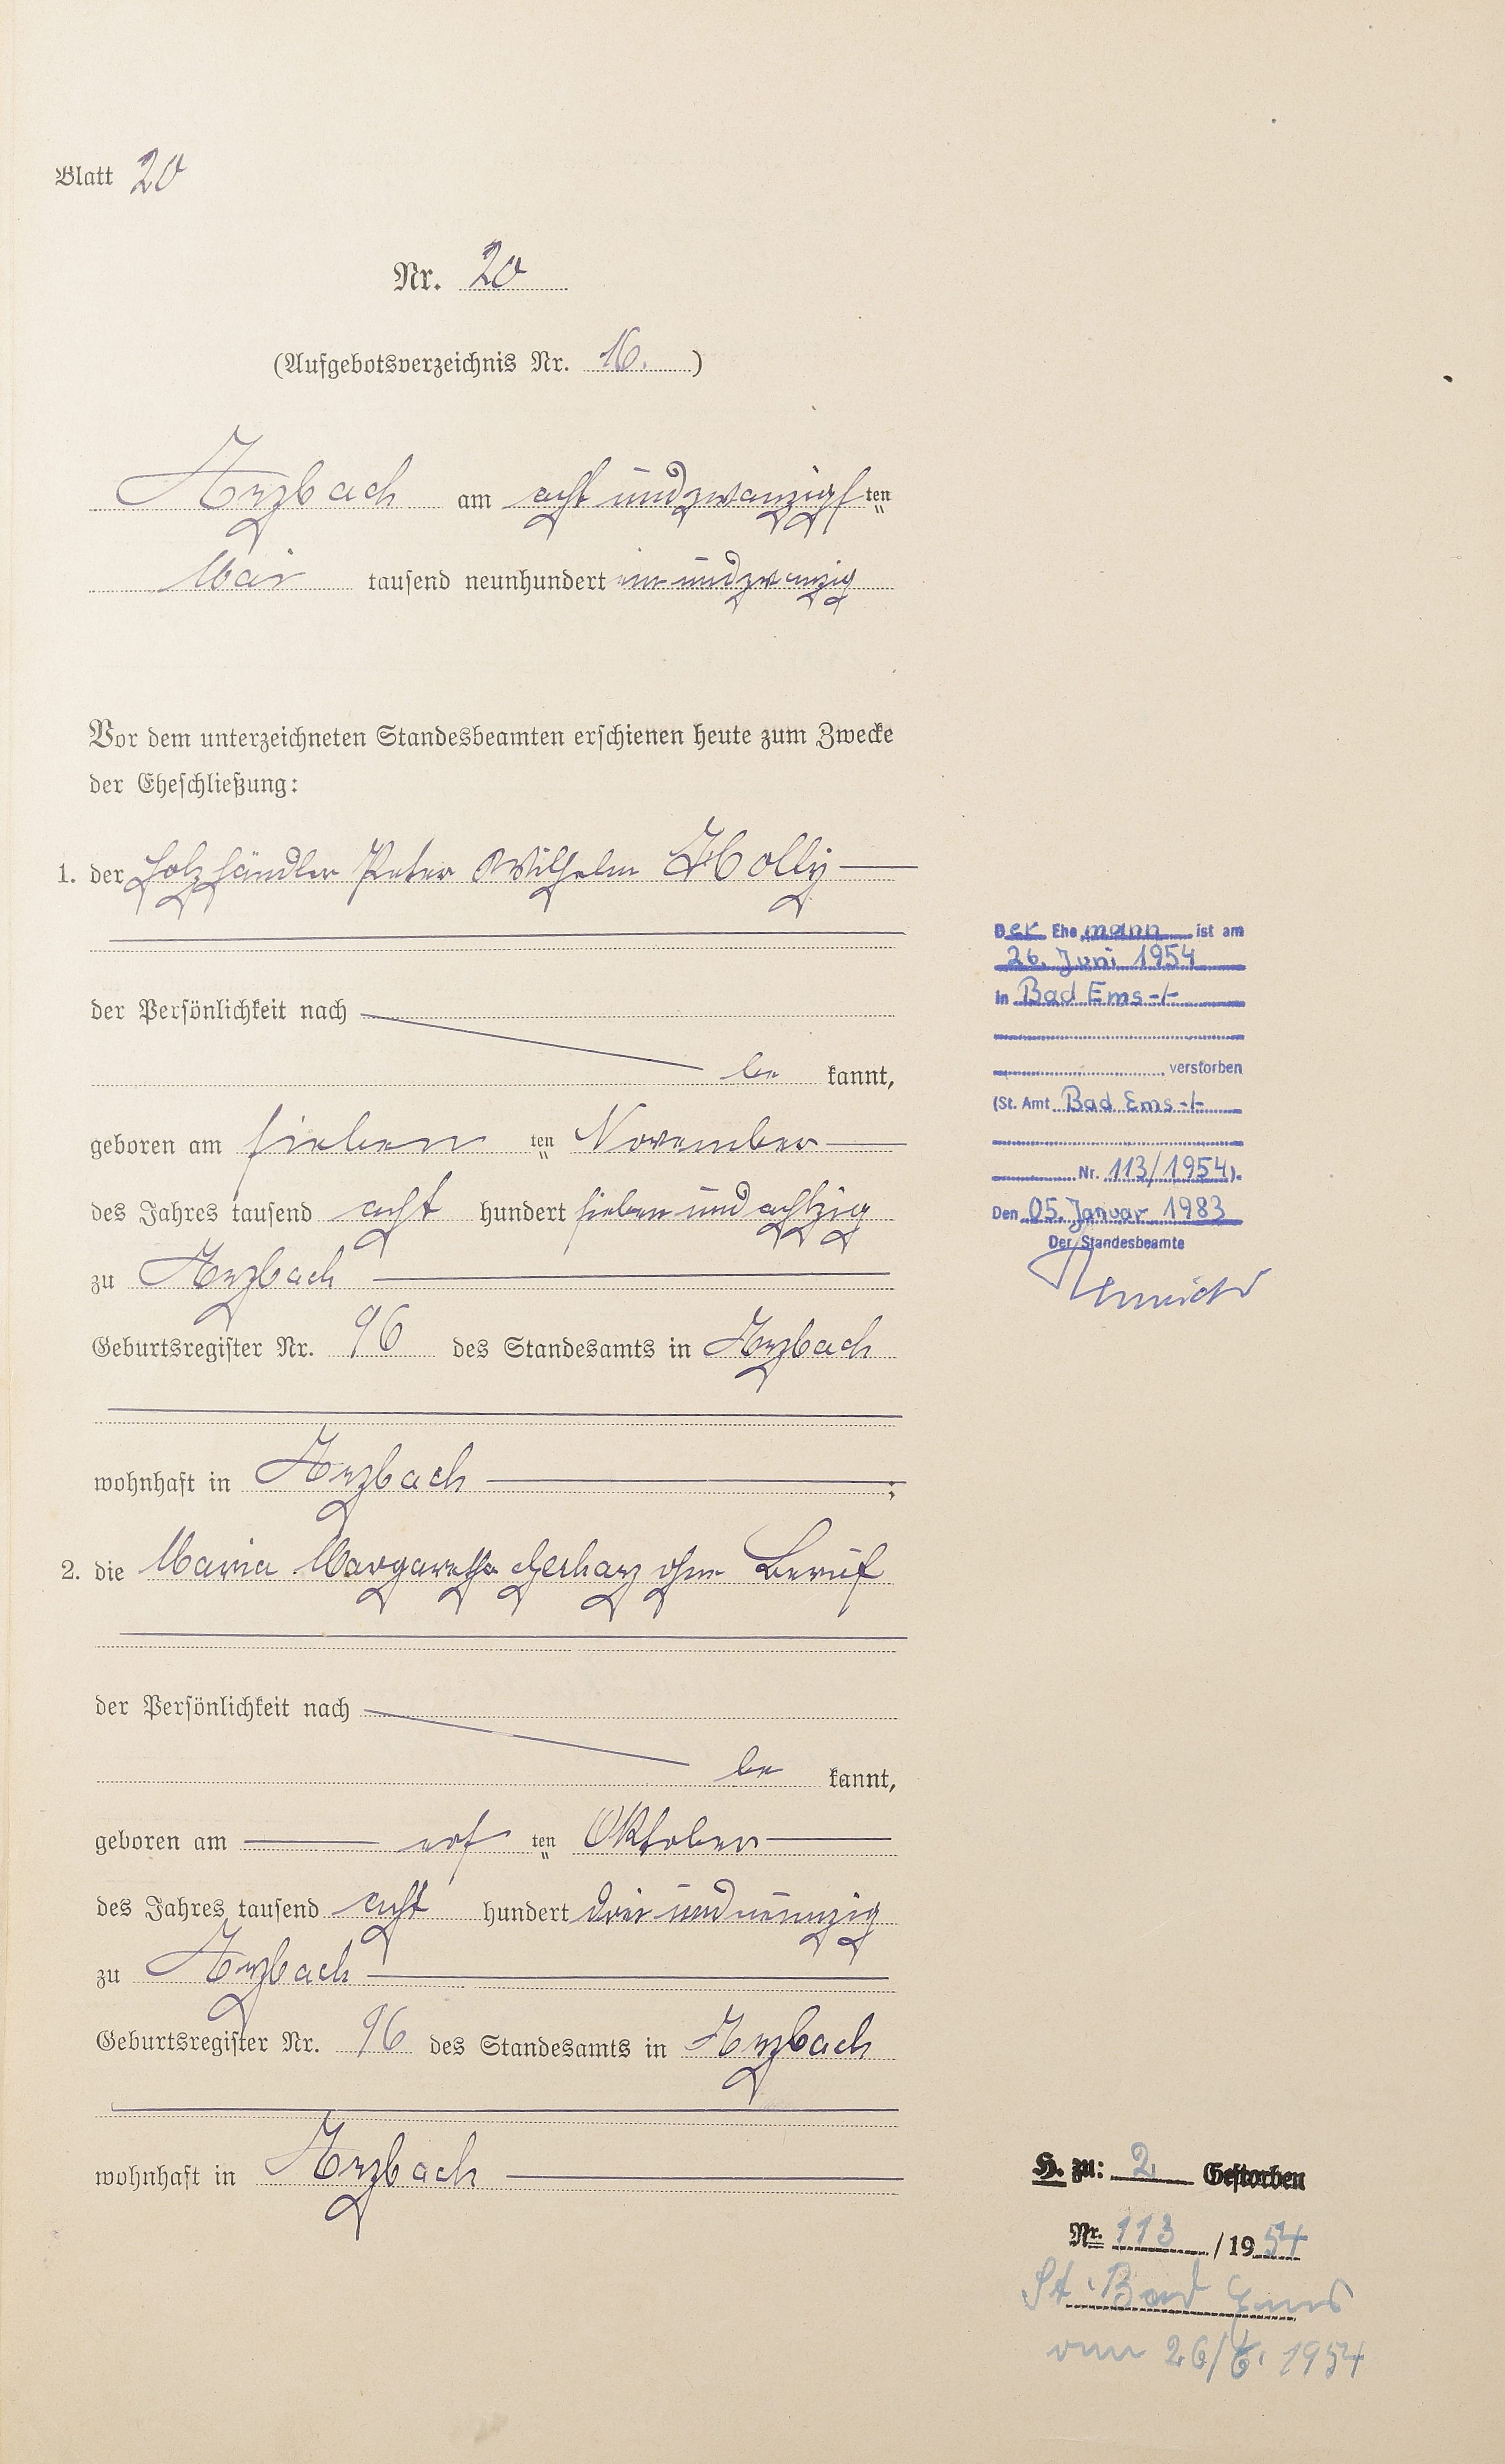 Blatt 20
Nr. 20
(Aufgebotsverzeichnis Nr. 16.)
Arzbach am acht und zwanzigsten
Mai tausend neunhundert ein und zwanzig
Vor dem unterzeichneten Standesbeamten erschienen heute zum Zwecke
der Eheschließung:
1. der Holzhändler Peter Wilhelm Holly
der Persönlichkeit nach
be kannt,
geboren am sieben ten November
des Jahres tausend acht hundert sieben und achtzig
zu Arzbach
Geburtsregister Nr. 96 des Standesamts in Arzbach
wohnhaft in Arzbach ;
2. die Maria Margaretha Gerharz ohne Beruf
der Persönlichkeit nach
be kannt,
geboren am ten Oktober
des Jahres tausend acht hundert drei und neunzig
zu Arzbach
Geburtsregister Nr. 96 des Standesamts in Arzbach
wohnhaft in Arzbach
Der Ehemann ist am
26. Juni 1954
in Bad Ems -/-
verstorben
(St. Amt Bad Ems -/-
Nr. 113/1954).
Den 05. Januar 1983
Der Standesbeamte
H. zu: 2 Gestorben
Nr. 113 / 1954
St. Bad Ems
vom 26/6. 1954